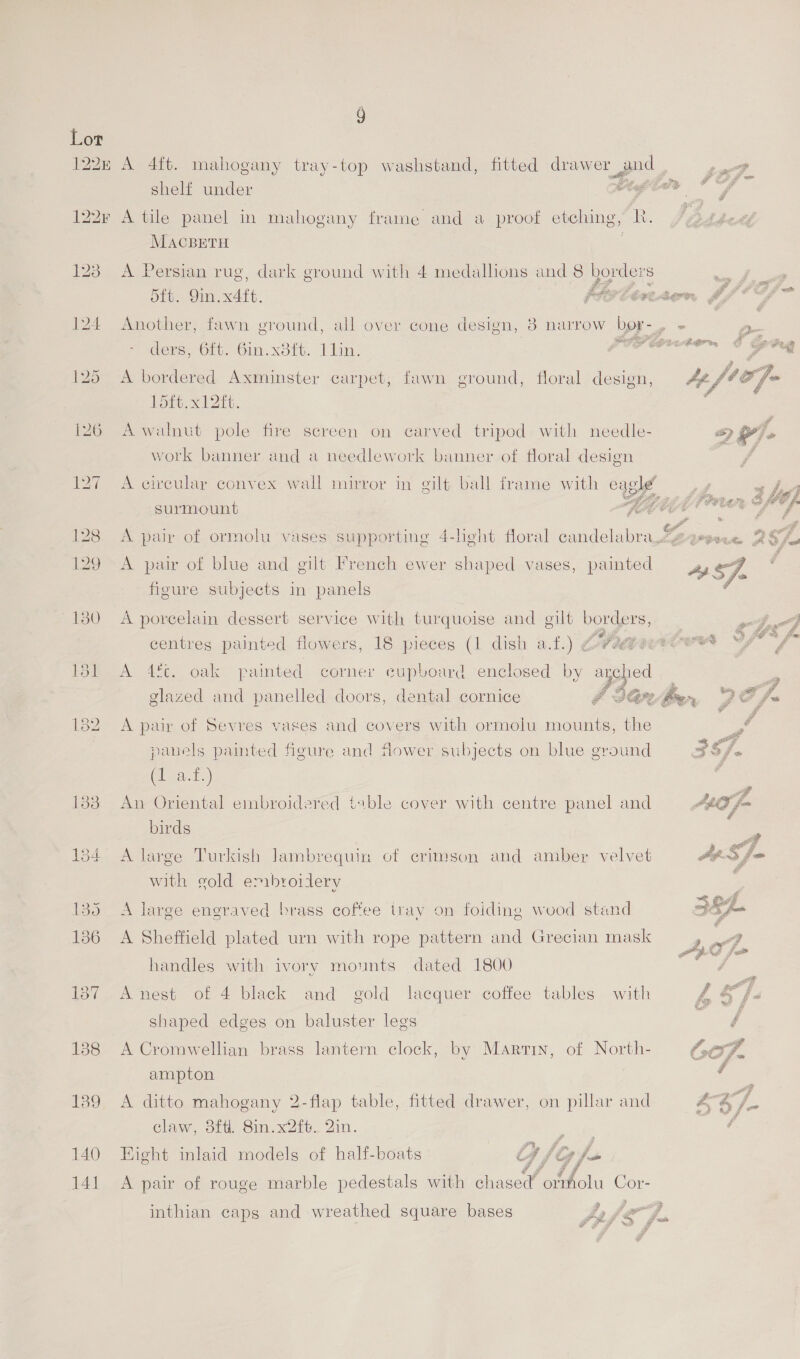 9
Lot
122E A 4ft. mahogany tray-top washstand, fitted drawer and
shelf under
122F A tile panel in mahogany frame and a proof etching, R.
MACBETH
123 A Persian rug, dark ground with 4 medallions and 8 borders
5ft. 9in.x4ft.
124 Another, fawn ground, all over cone design, 3 narrow bor-
ders, 6ft. 6in.x3ft. 11in.
125 A bordered Axminster carpet, fawn ground, floral design,
15ft.x12ft.
126 A walnut pole fire screen on carved tripod with needle-
work banner and a needlework banner of floral design
127 A circular convex wall mirror in gilt ball frame with eagle
surmount
128 A pair of ormolu vases supporting 4-light floral candelabra
129 A pair of blue and gilt French ewer shaped vases, painted
figure subjects in panels
130 A porcelain dessert service with turquoise and gilt borders,
centres painted flowers, 18 pieces (1 dish a.f.)
131 A 4ft. oak painted corner cupboard enclosed by arched
glazed and panelled doors, dental cornice
132 A pair of Sevres vases and covers with ormolu mounts, the
panels painted figure and flower subjects on blue ground 35/-
(1 a.f.)
133 An Oriental embroidered table cover with centre panel and
birds
134 A large Turkish lambrequin of crimson and amber velvet
with gold embroidery
135 A large engraved brass coffee tray on folding wood stand
136 A Sheffield plated urn with rope pattern and Grecian mask
handles with ivory mounts dated 1800
137 A nest of 4 black and gold lacquer coffee tables with
shaped edges on baluster legs
138 A Cromwellian brass lantern clock, by MARTIN, of North-
ampton
139 A ditto mahogany 2-flap table, fitted drawer, on pillar and
claw, 3ft. 8in.x2ft. 2in.
140 Eight inlaid models of half-boats
141 A pair of rouge marble pedestals with chased ormolu Cor-
inthian caps and wreathed square bases